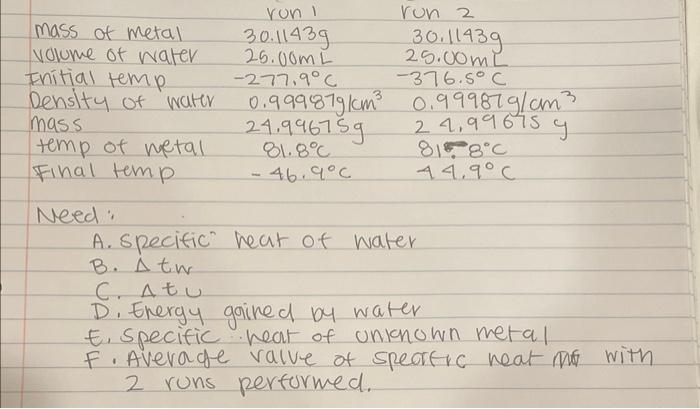 run 1 run 2
mass of metal 30.1143g 30.1143g
volume of water 25.00mL 25.00mL
Initial temp -277.9°C -376.5°C
Density of water 0.99987g/cm³ 0.99987g/cm³
mass 24.99675g 24.99675 g
temp of metal 81.8°C 81.8°C
Final temp - 46.9°C 44.9°C
Need:
A. specific heat of water
B. Δtw
C. Δtu
D. Energy gained by water
E. specific heat of unknown metal
F. Average value of specific heat with
2 runs performed.